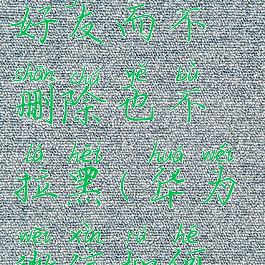 好友而不
shān chú yě bù
删除也不
lā hēi huá wéi
拉黑(华为
wēi xìn rú hé